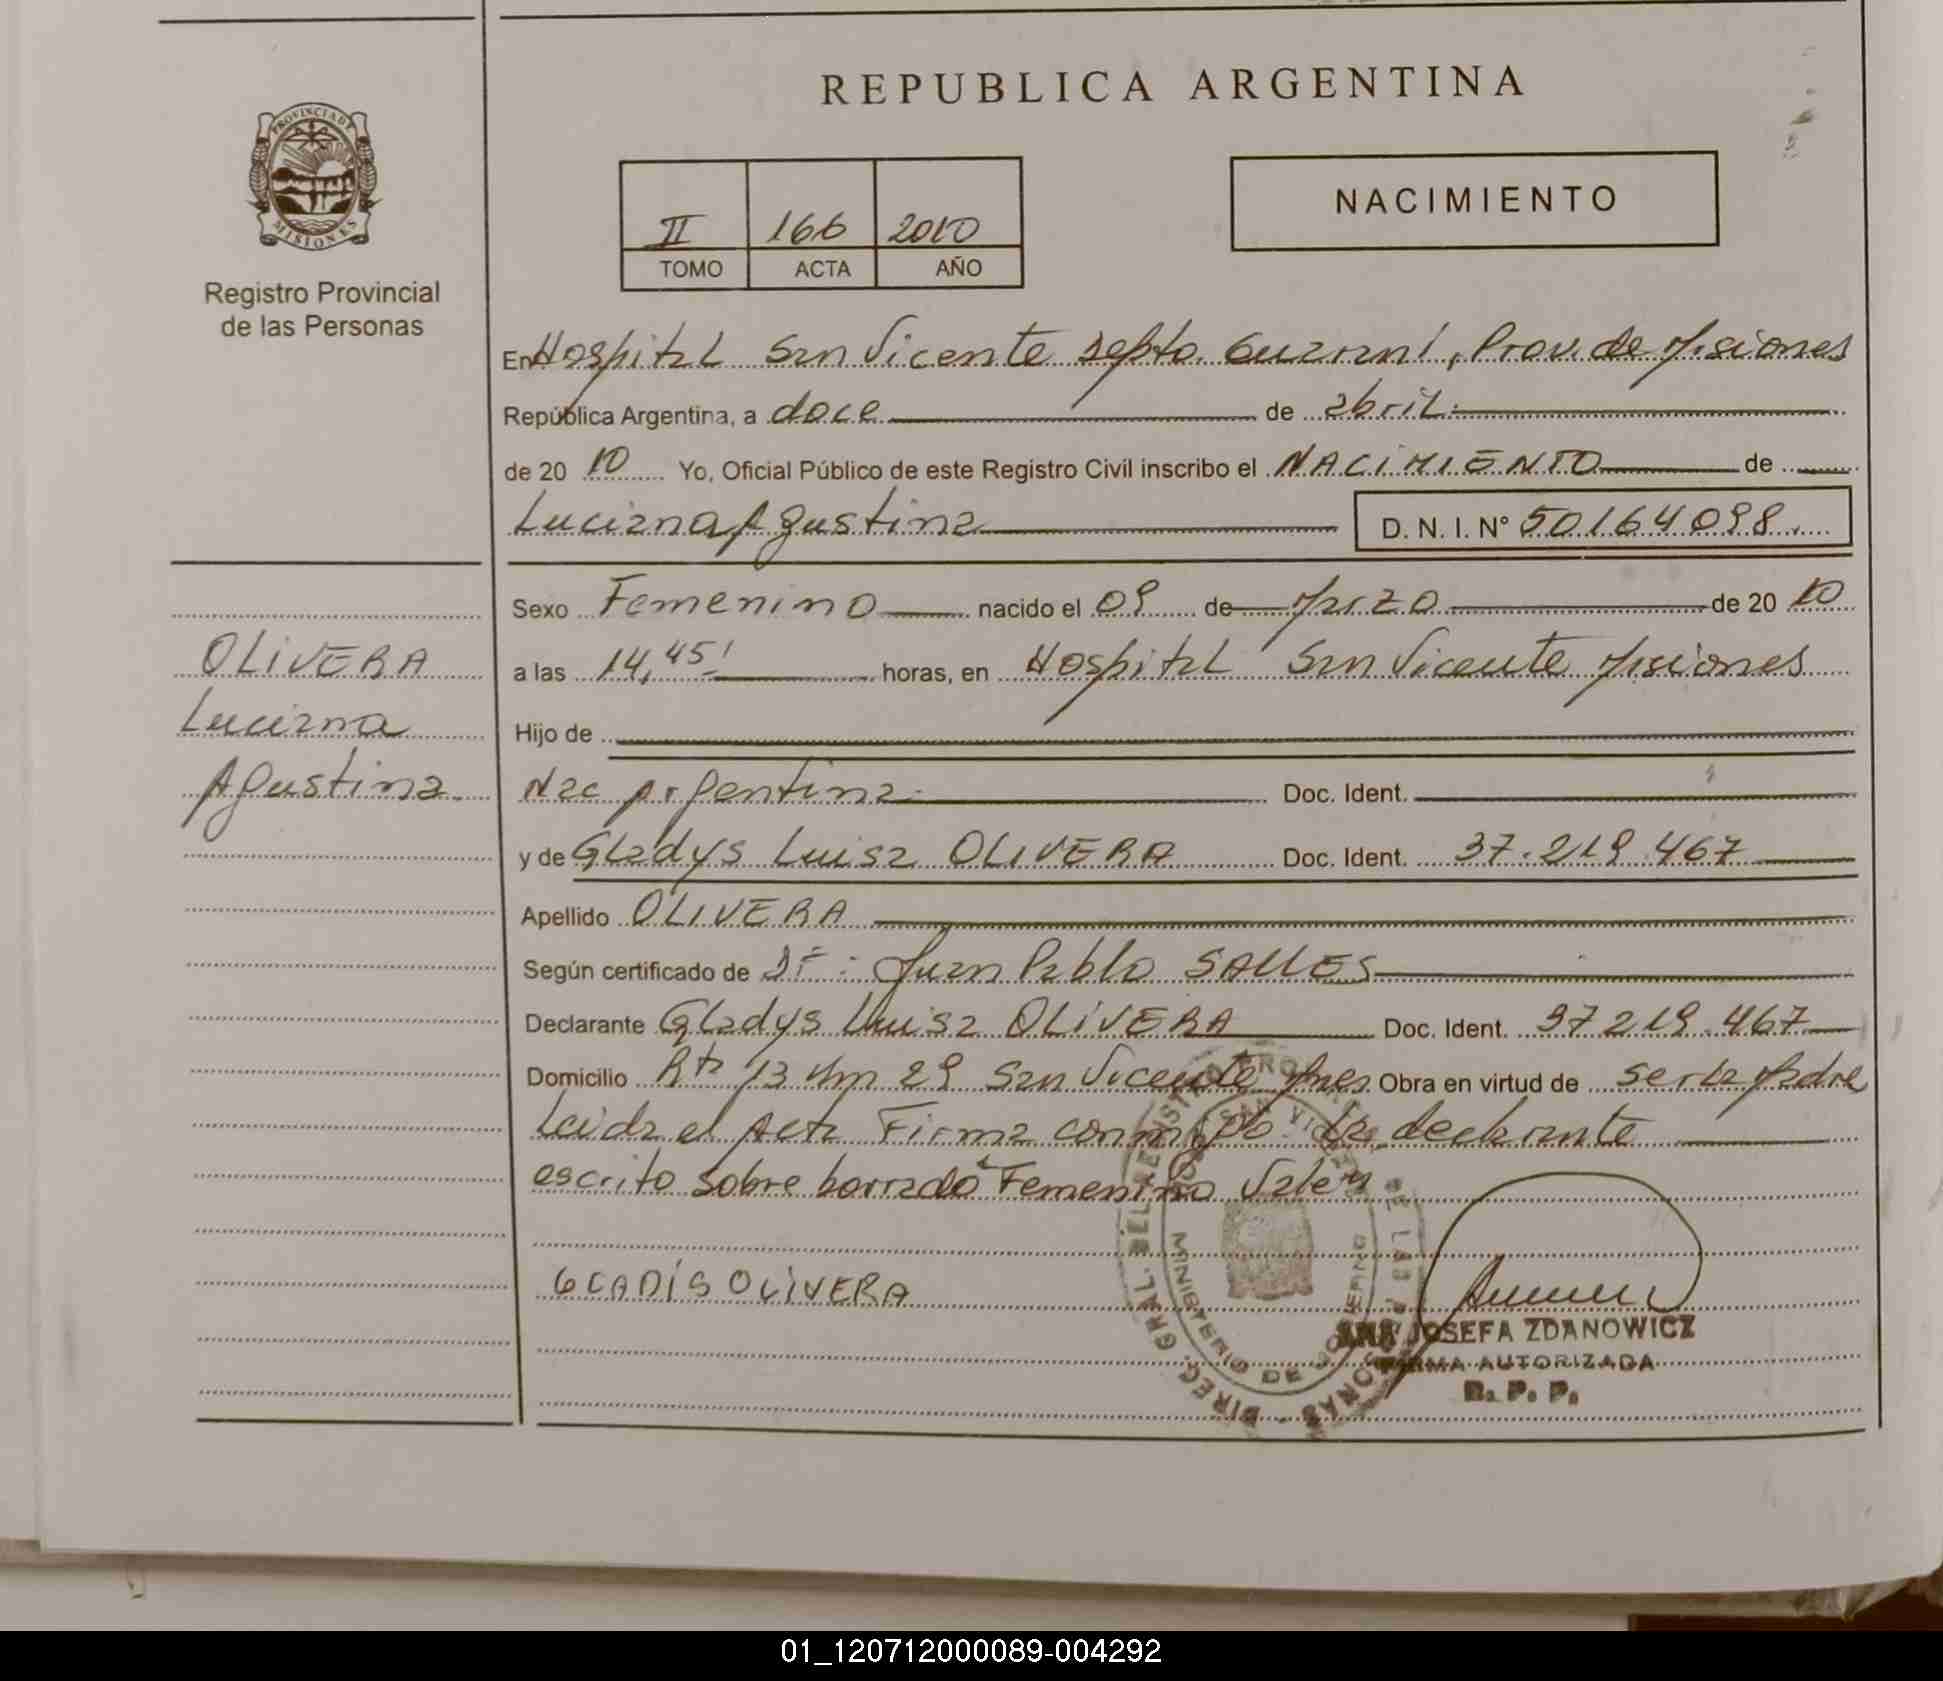 REPUBLICA ARGENTINA
PROVINCIA DE
MISIONES
Registro Provincial
de las Personas
II 166 2010
TOMO ACTA AÑO
NACIMIENTO
En Hospital San Vicente Depto. Guarani, Prov. de Misiones
República Argentina, a doce de abril
de 20 10 Yo, Oficial Público de este Registro Civil inscribo el NACIMIENTO de
Luciana Agustina D. N. I. N° 50164098
Sexo Femenino nacido el 09 de Marzo de 20 10
a las 14,45' horas, en Hospital San Vicente Misiones
Hijo de
Nac Argentina Doc. Ident.
y de Gladys Luisa OLIVERA Doc. Ident. 37.219.467
Apellido OLIVERA
Según certificado de Dr: Juan Pablo SALLES
Declarante Gladys Luisa OLIVERA Doc. Ident. 37219.467
Domicilio Rta 13 Km 29 San Vicente Mnes Obra en virtud de ser la Madre
Leida el Acta Firma conmigo la declarante
escrito sobre borrado "Femenino Vale"
GLADIS OLIVERA
OLIVERA
Luciana
Agustina
DIREC. GRAL. DEL REGISTRO PRO DE LAS PERSONAS
SAN VICENTE
MINISTERIO DE GOBIERNO
ANA JOSEFA ZDANOWICZ
FIRMA AUTORIZADA
R. P. P.
01_120712000089-004292